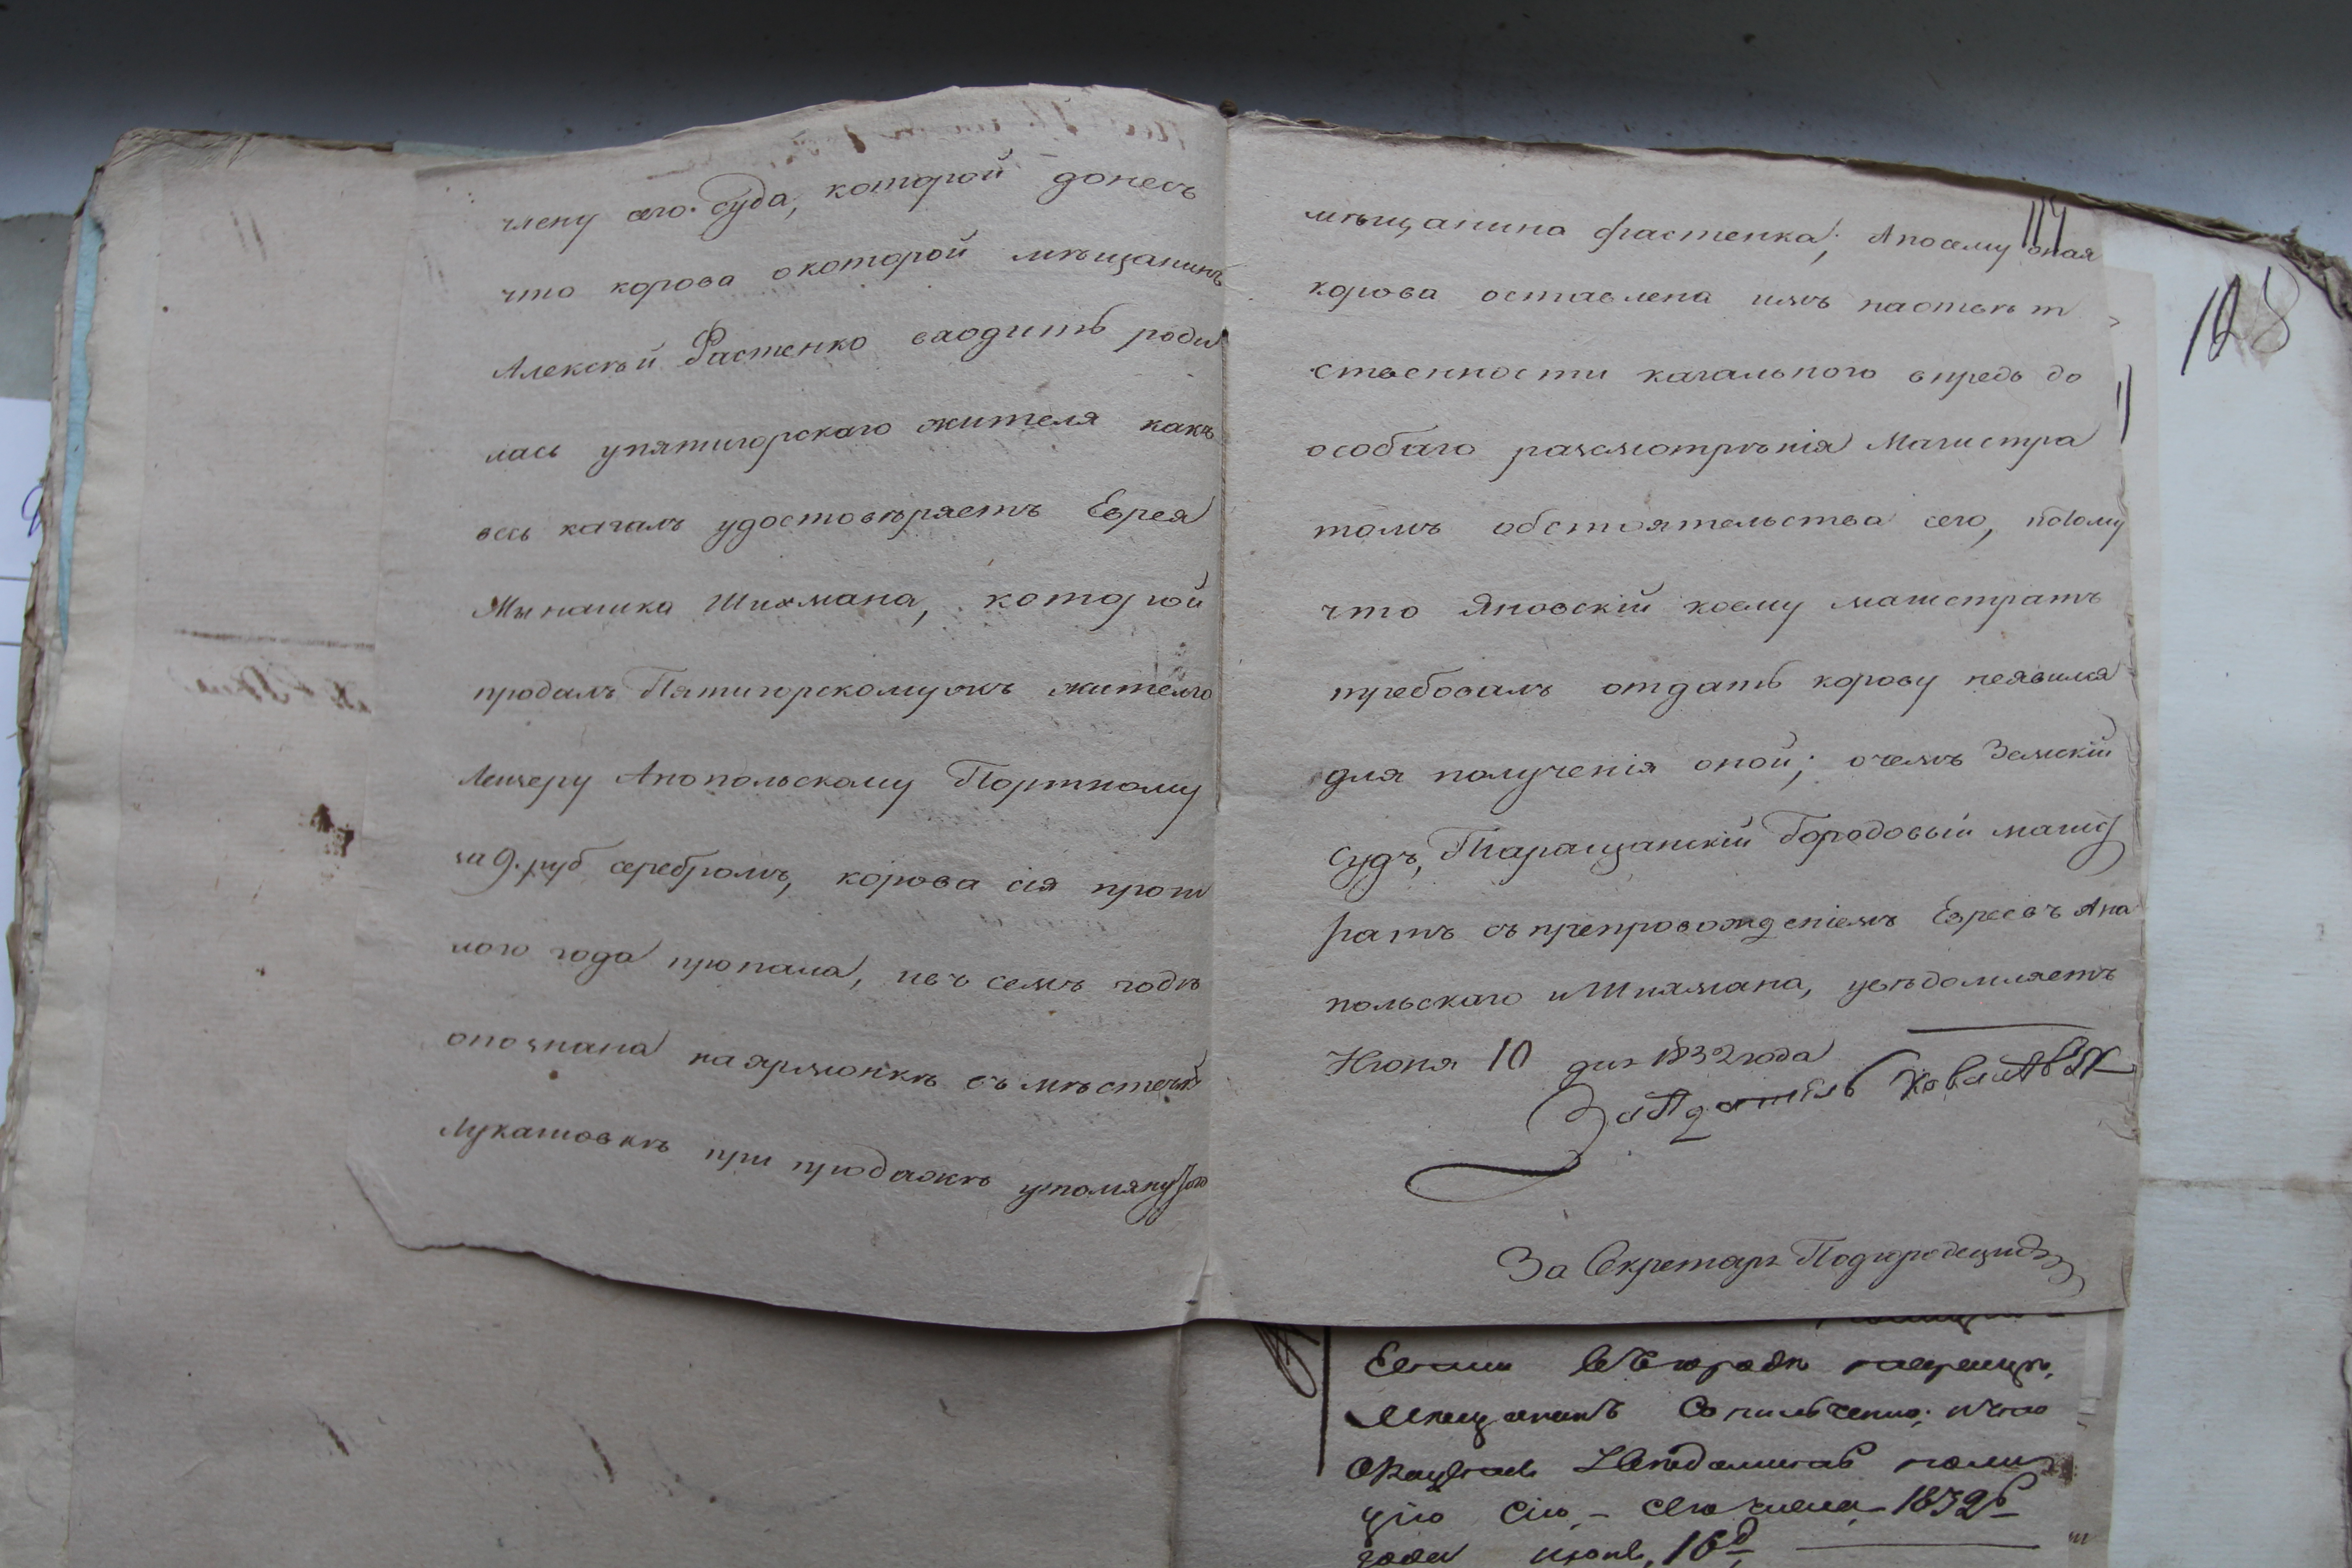 члену сего суда, которой донесъ
что корова о которой мѣщанинъ
Алексѣй Фастенко входитъ роди
лась упятигорскаго жителя какъ
весь кагалъ удостовѣряетъ Еврея
Мынашка Шихмана, которой
продалъ Пятигорскому жъ жителю
Лейзеру Анопольскому Портному
за 9. руб серебромъ, корова сія прош
лого года пропала, ивъ семъ годѣ
опознана на ярмонкѣ въ мѣстечкѣ
Лукашовкѣ при продажѣ упомянутою
114
128
мѣщанина Фастенка; Апосему оная
корова оставлена имъ наотвѣт
ственности кагального впредь до
особаго разсмотрѣнія Магистра
томъ обстоятельства сего, потому
что Яновскій коему магистратъ
требовалъ отдать корову неявился
для полученія оной; очемъ Земскій
Судъ, Таращанскій Городовый магис
ратъ съ препровожденіемъ Евреевъ Ано
польскаго и Шихмана, увѣдомляетъ
Июня 10 дня 1832 года
Засѣдатель
За Секретаря Подгородецкій
мѣщанинъ
цію сію, – сего числа 1832
года июня, 16